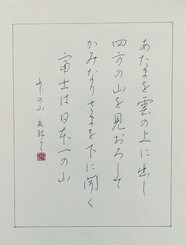 あたまを雲の上に出し
四方の山を見おろして
かみなりさまを下に聞く
富士は日本一の山
ふじの山